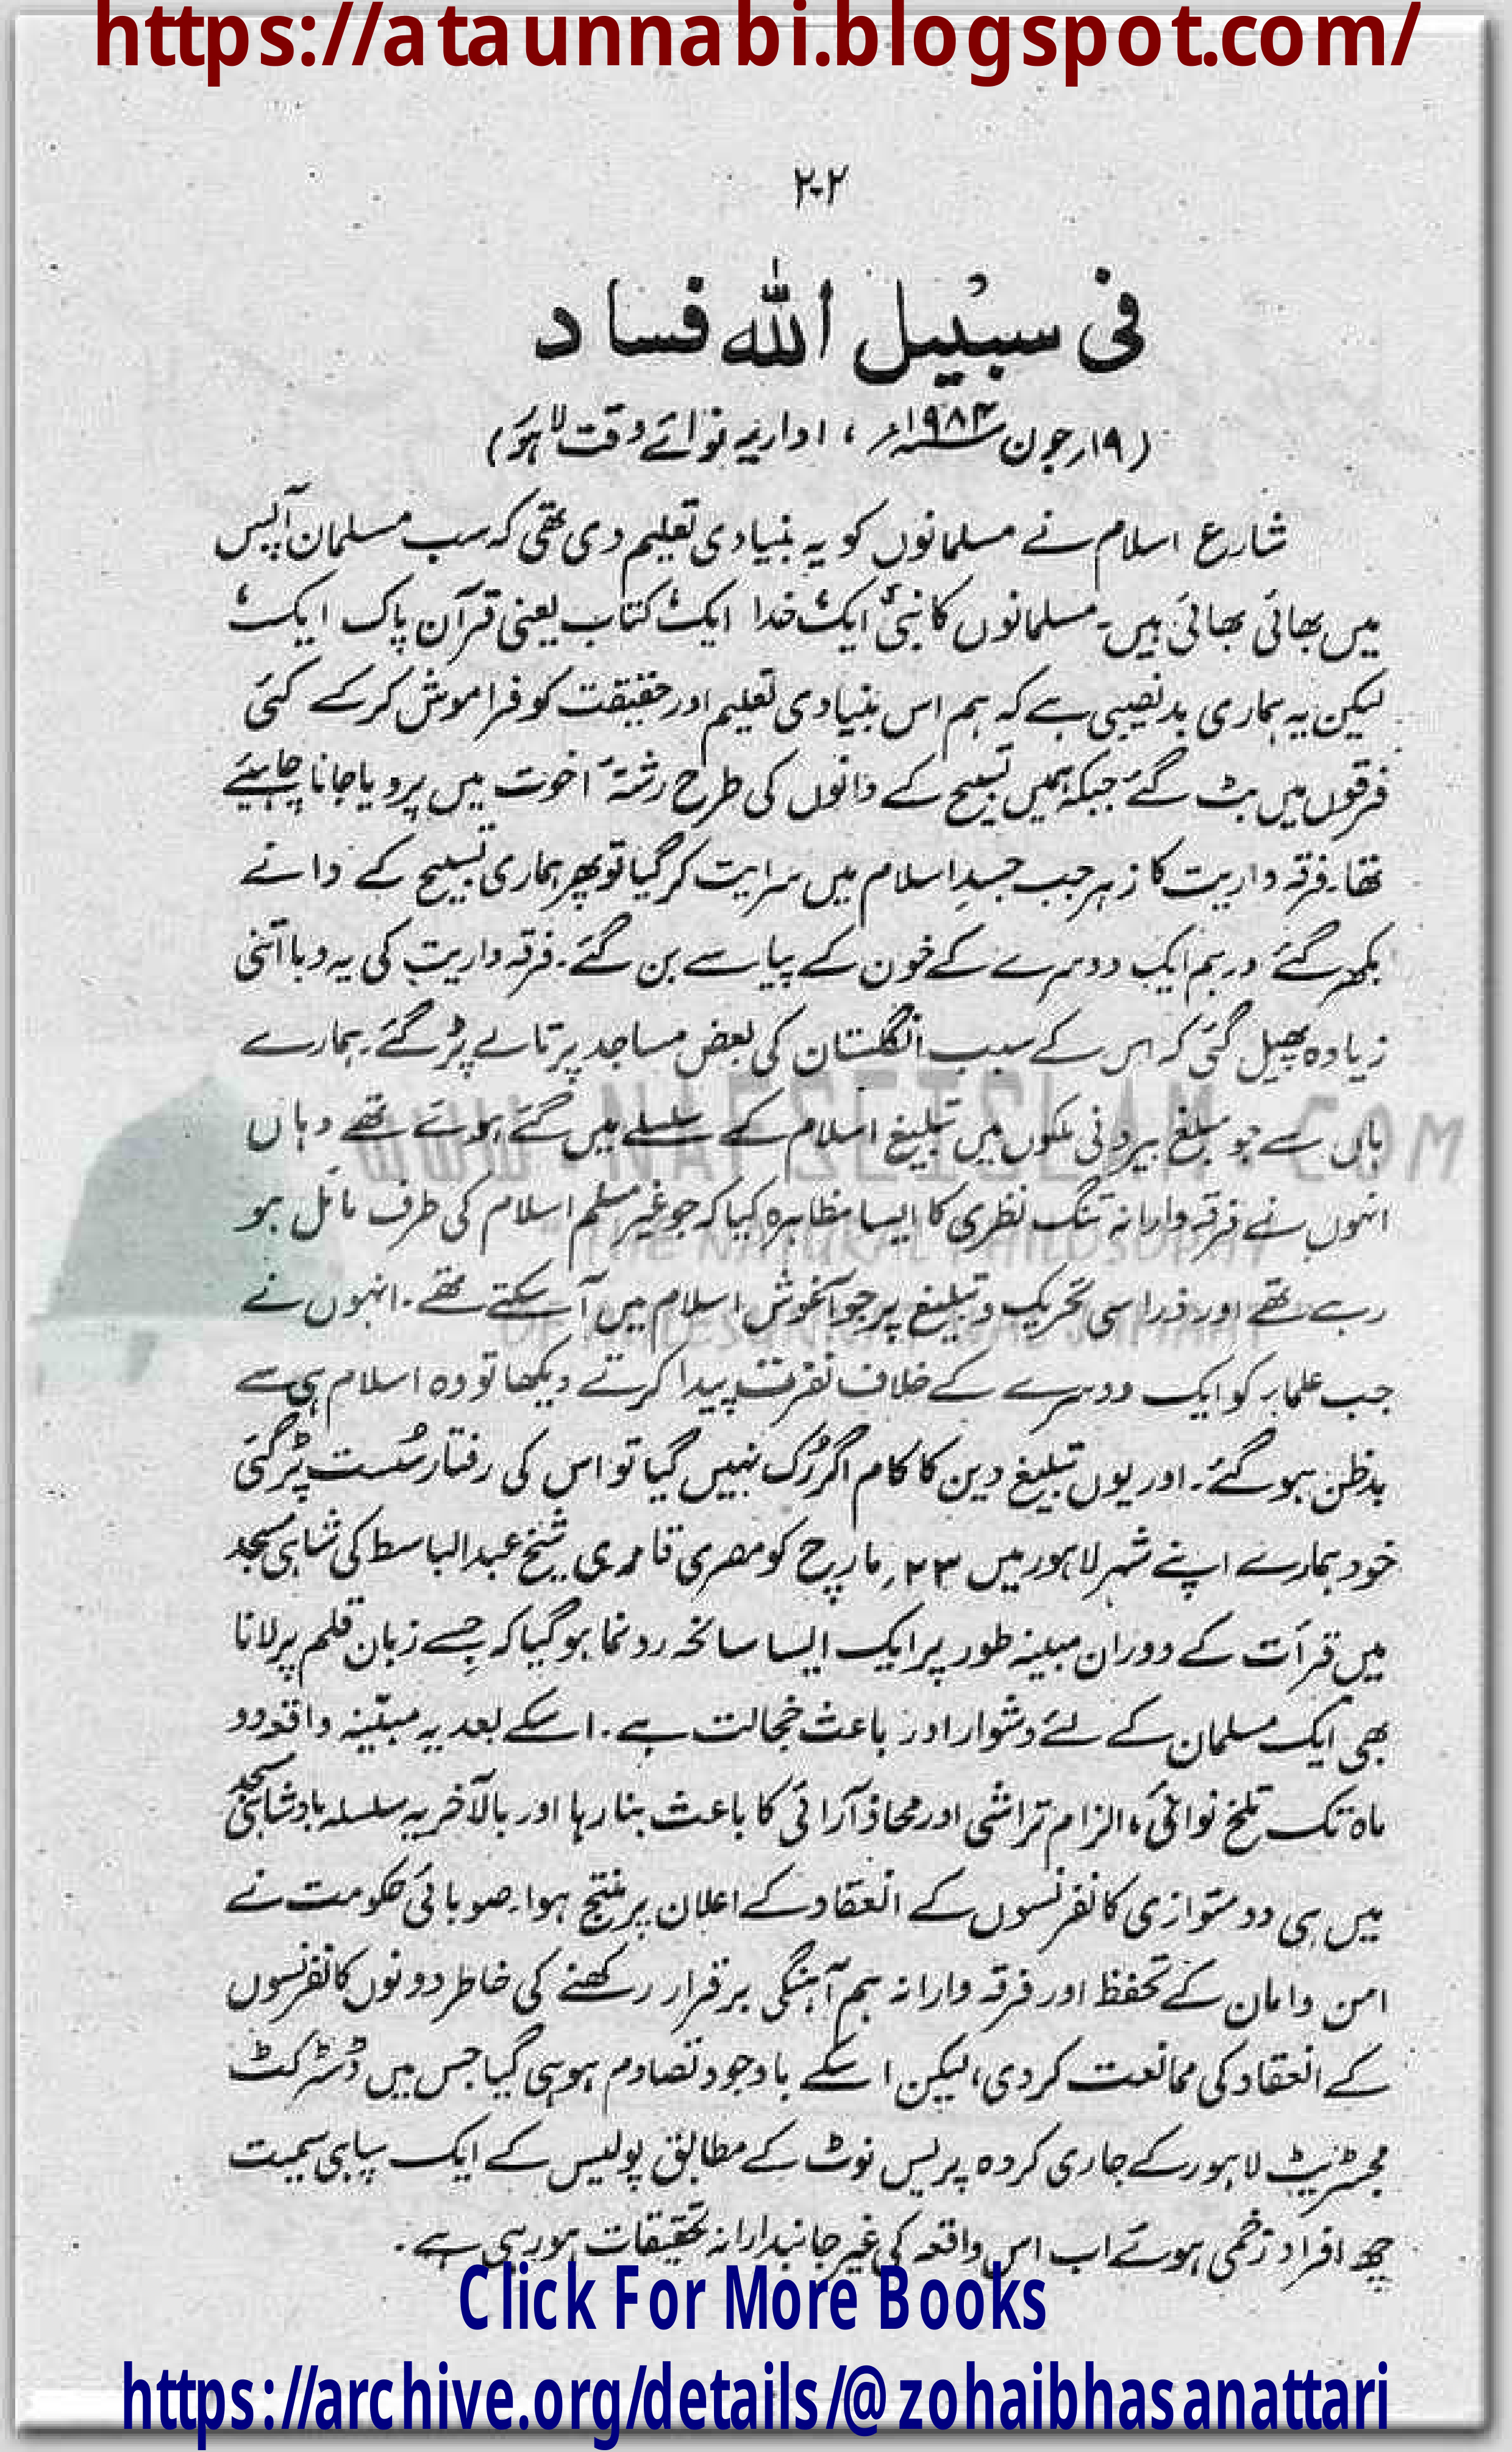 https://ataunnabi.blogspot.com/
۲۰۲
فی سبیل اللہ فساد
(۱۹ر جون ۱۹۸۴ء ، اداریہ نوائے وقت لاہور)
شارع اسلام نے مسلمانوں کو یہ بنیادی تعلیم دی تھی کہ سب مسلمان آپس
میں بھائی بھائی ہیں۔ مسلمانوں کا نبیؐ ایک، خدا ایک، کتاب یعنی قرآن پاک ایک،
لیکن یہ ہماری بدنصیبی ہے کہ ہم اس بنیادی تعلیم اور حقیقت کو فراموش کرکے کئی
فرقوں میں بٹ گئے جبکہ ہمیں تسبیح کے دانوں کی طرح رشتۂ اخوت میں پرویا جانا چاہیئے
تھا۔ فرقہ واریت کا زہر جب جسدِ اسلام میں سرایت کر گیا تو پھر ہماری تسبیح کے دانے
بکھر گئے ور ہم ایک دوسرے کے خون کے پیاسے بن گئے۔ فرقہ واریت کی یہ وبا اتنی
زیادہ پھیل گئی کہ اس کے سبب انگلستان کی بعض مساجد پر تالے پڑ گئے۔ ہمارے
ہاں سے جو مبلغ بیرونی ملکوں میں تبلیغ اسلام کے سلسلے میں گئے ہوئے تھے وہاں
انہوں نے فرقہ وارانہ تنگ نظری کا ایسا مظاہرہ کیا کہ جو غیر مسلم اسلام کی طرف مائل ہو
رہے تھے اور ذرا سی تحریک و تبلیغ پر جو آغوش اسلام میں آ سکتے تھے۔ انہوں نے
جب علماء کو ایک دوسرے کے خلاف نفرت پیدا کرتے دیکھا تو وہ اسلام ہی سے
بدظن ہو گئے۔ اور یوں تبلیغ دین کا کام اگر رُک نہیں گیا تو اس کی رفتار سُست پڑ گئی
خود ہمارے اپنے شہر لاہور میں ۲۳ر مارچ کو مصری قاری شیخ عبدالباسط کی شاہی مسجد
میں قرأت کے دوران مبینہ طور پر ایک ایسا سانحہ رونما ہو گیا کہ جِسے زبان قلم پر لانا
بھی ایک مسلمان کے لئے دشوار اور باعث خجالت ہے۔ اسکے بعد یہ مبیّنہ واقعہ دو
ماہ تک تلخ نوائی، الزام تراشی اور محاذ آرائی کا باعث بنا رہا اور بالآخر یہ سلسلہ بادشاہی مسجد
میں ہی دو متوازی کانفرنسوں کے انعقاد کے اعلان پر منتج ہوا۔ صوبائی حکومت نے
امن و امان کے تحفظ اور فرقہ وارانہ ہم آہنگی برقرار رکھنے کی خاطر دونوں کانفرنسوں
کے انعقاد کی ممانعت کر دی، لیکن اسکے باوجود تصادم ہو ہی گیا جس میں ڈسٹرکٹ
مجسٹریٹ لاہور کے جاری کردہ پریس نوٹ کے مطابق پولیس کے ایک سپاہی سمیت
چھ افراد زخمی ہوئے اب اس واقعہ کی غیر جانبدارانہ تحقیقات ہو رہی ہے۔
WWW.NAFSEISLAM.COM
Click For More Books
https://archive.org/details/@zohaibhasanattari